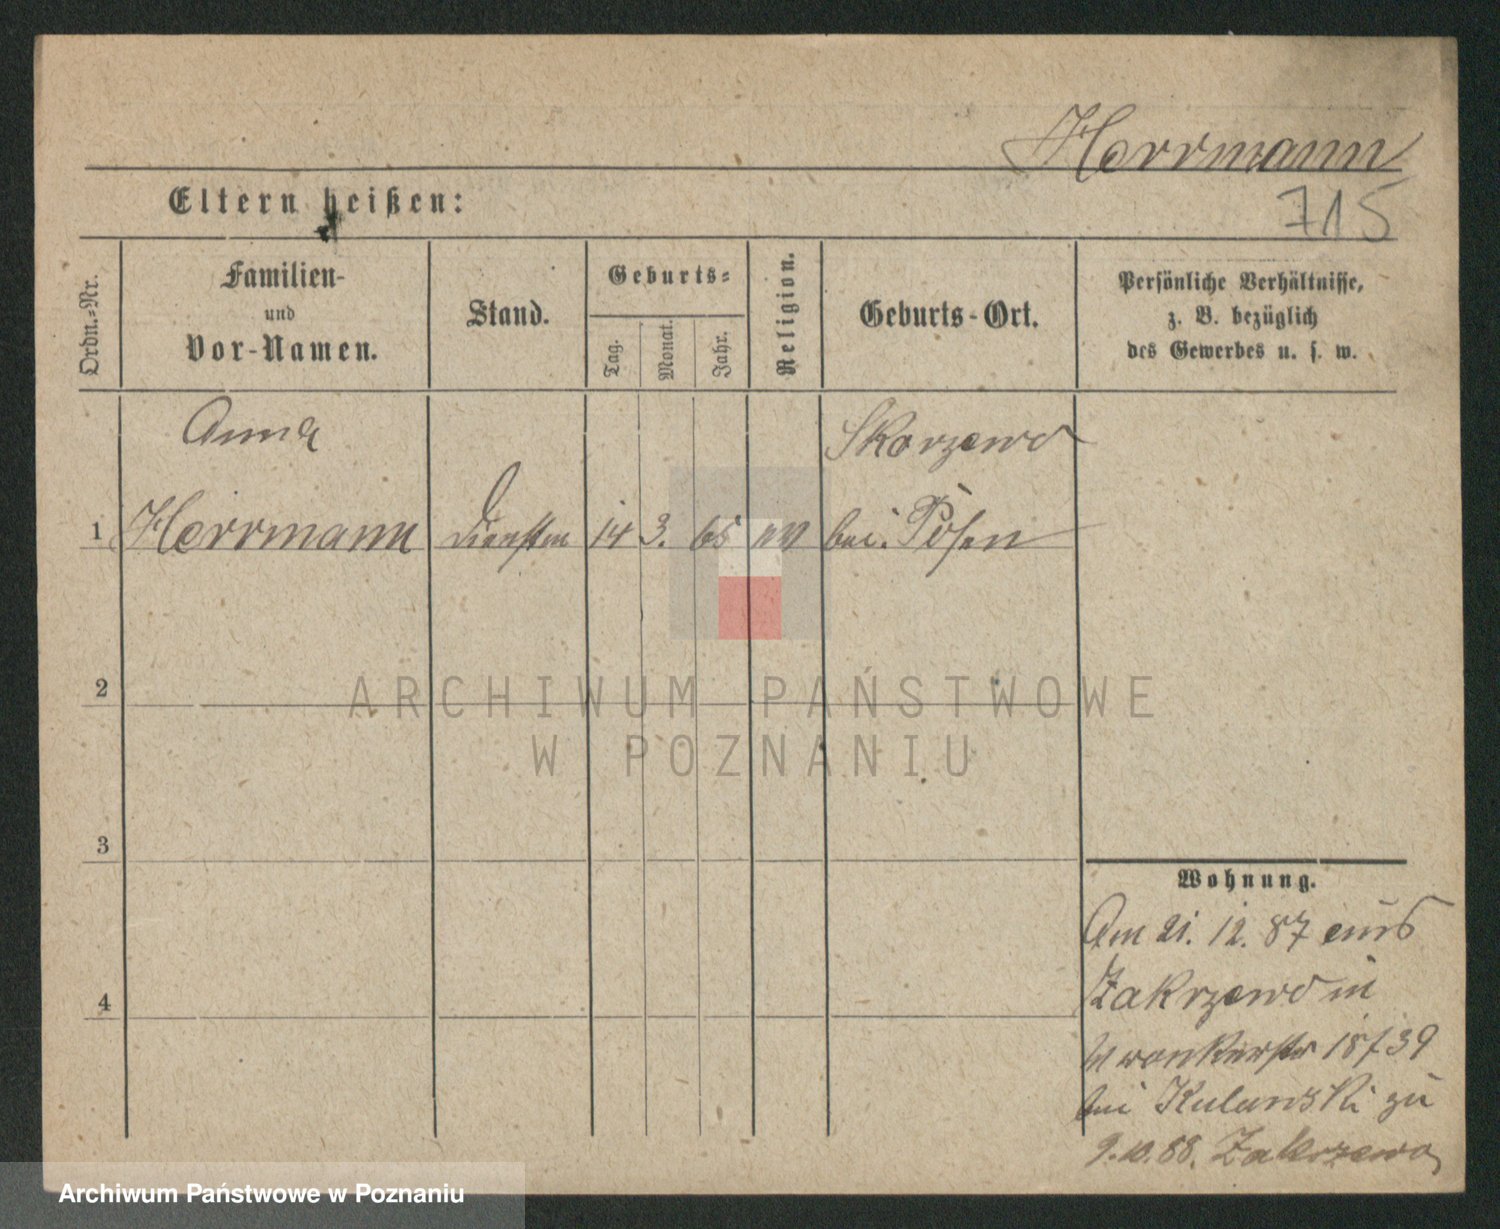 Herrmann
Eltern heißen:
715
Ordn.=Nr.
Familien-
und
Vor-Namen.
Stand.
Geburts=
Tag.
Monat.
Jahr.
Religion.
Geburts-Ort.
Persönliche Verhältnisse,
z. B. bezüglich
des Gewerbes u. s. w.
Anna
Skorzewo
1 Herrmann 14 3. 65 ev bei Posen
2
ARCHIWUM PAŃSTWOWE
W POZNANIU
3
Wohnung.
Am 21. 12. 87 aus
Zakrzewo in
Wronkerstr 18/39
bei zu
4
9.10.88. Zakrzewo
Archiwum Państwowe w Poznaniu